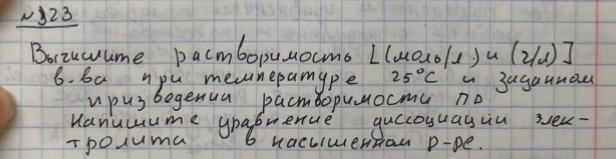 №323
Вычислите растворимость [(моль/л) и (г/л)]
в-ва при температуре 25°С и заданном
призведении растворимости ПР
Напишите уравнение диссоциации элек-
тролита в насышенном р-ре.